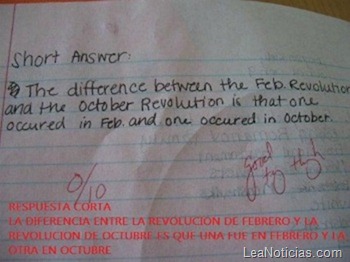 Short Answer:
The difference between the Feb. Revolution
and the October Revolution is that one
occured in Feb. and one occured in October.
0/10
good
try tho!
RESPUESTA CORTA
LA DIFERENCIA ENTRE LA REVOLUCIÓN DE FEBRERO Y LA
REVOLUCIÓN DE OCTUBRE ES QUE UNA FUE EN FEBRERO Y LA
OTRA EN OCTUBRE
LeaNoticias.com